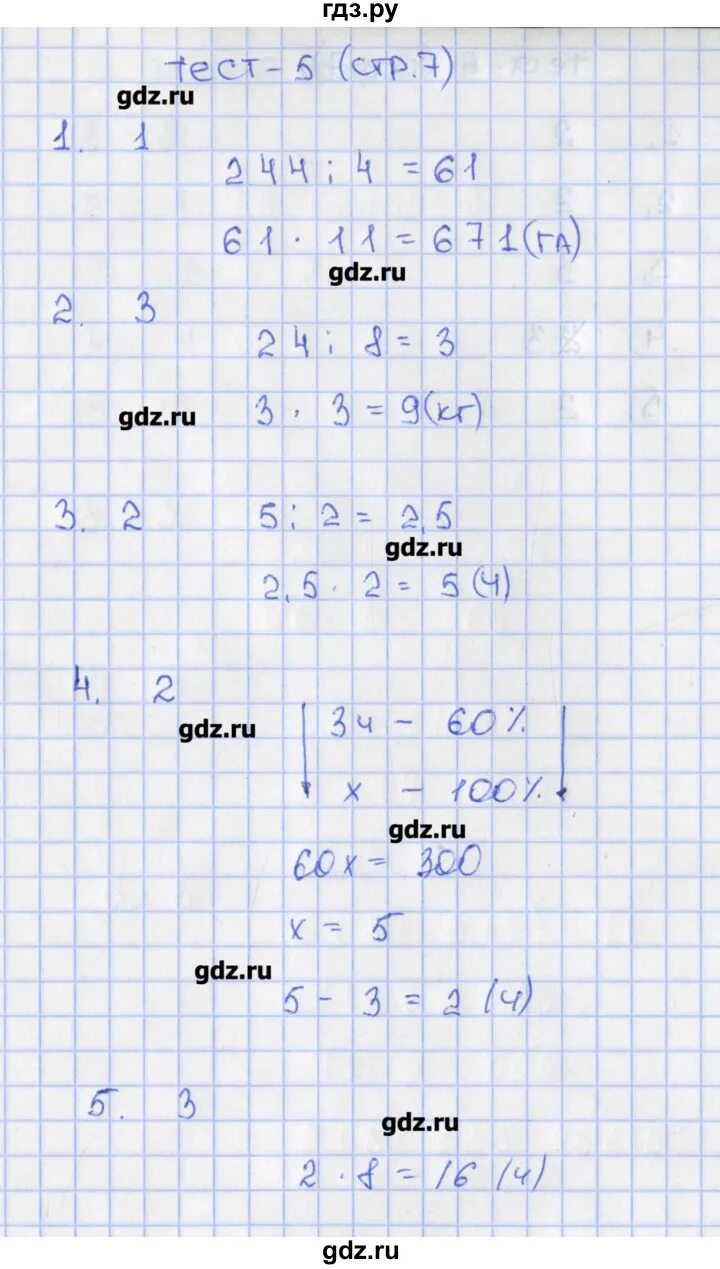 гдз.ру
тест - 5 (стр. 7)
gdz.ru
1. 1
244 : 4 = 61
61 · 11 = 671 (га)
gdz.ru
2. 3
24 : 8 = 3
gdz.ru
3 · 3 = 9 (кг)
3. 2
5 : 2 = 2,5
gdz.ru
2,5 · 2 = 5 (ч)
4. 2
gdz.ru
3ч - 60%
x - 100%
gdz.ru
60x = 300
x = 5
gdz.ru
5 - 3 = 2 (ч)
5. 3
gdz.ru
2 · 8 = 16 (ч)
gdz.ru